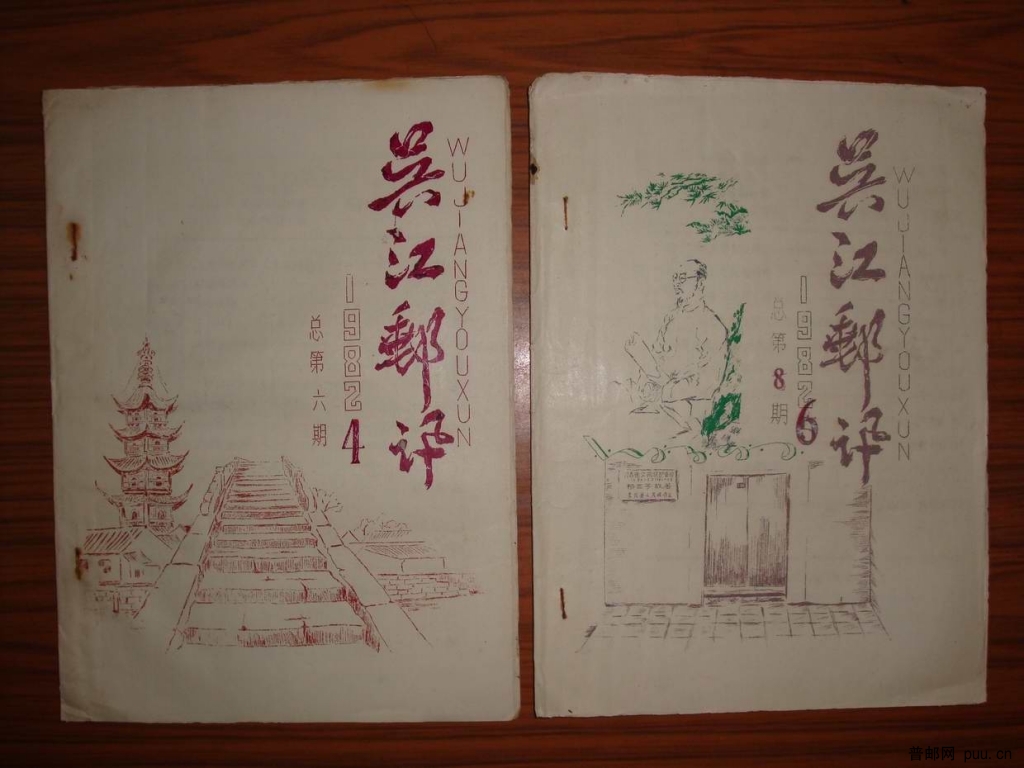 吴江郵讯
WUJIANGYOUXUN
1982 4
总第六期
吴江郵讯
WUJIANGYOUXUN
1982 6
总第8期
普邮网 puu.cn